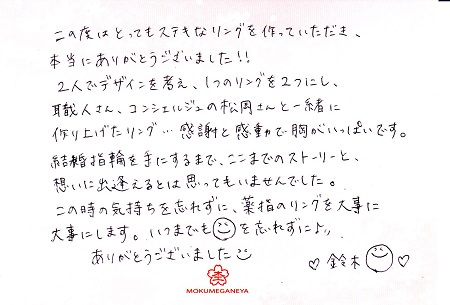 この度はとってもステキなリングを作っていただき、
本当にありがとうございました!!
2人でデザインを考え、1つのリングを2つにし、
職人さん、コンシェルジュの松岡さんと一緒に
作り上げたリング…感謝と感動で胸がいっぱいです。
結婚指輪を手にするまで、ここまでのストーリーと、
想いに出逢えるとは思ってもいませんでした。
この時の気持ちを忘れずに、薬指のリングを大事に
大事にします。いつまでも😊を忘れずに♪♪
ありがとうございました😊
♡鈴木😊♡
MOKUMEGANEYA